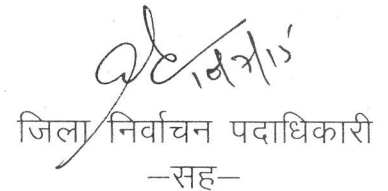 जिला निर्वाचन पदाधिकारी
–सह–